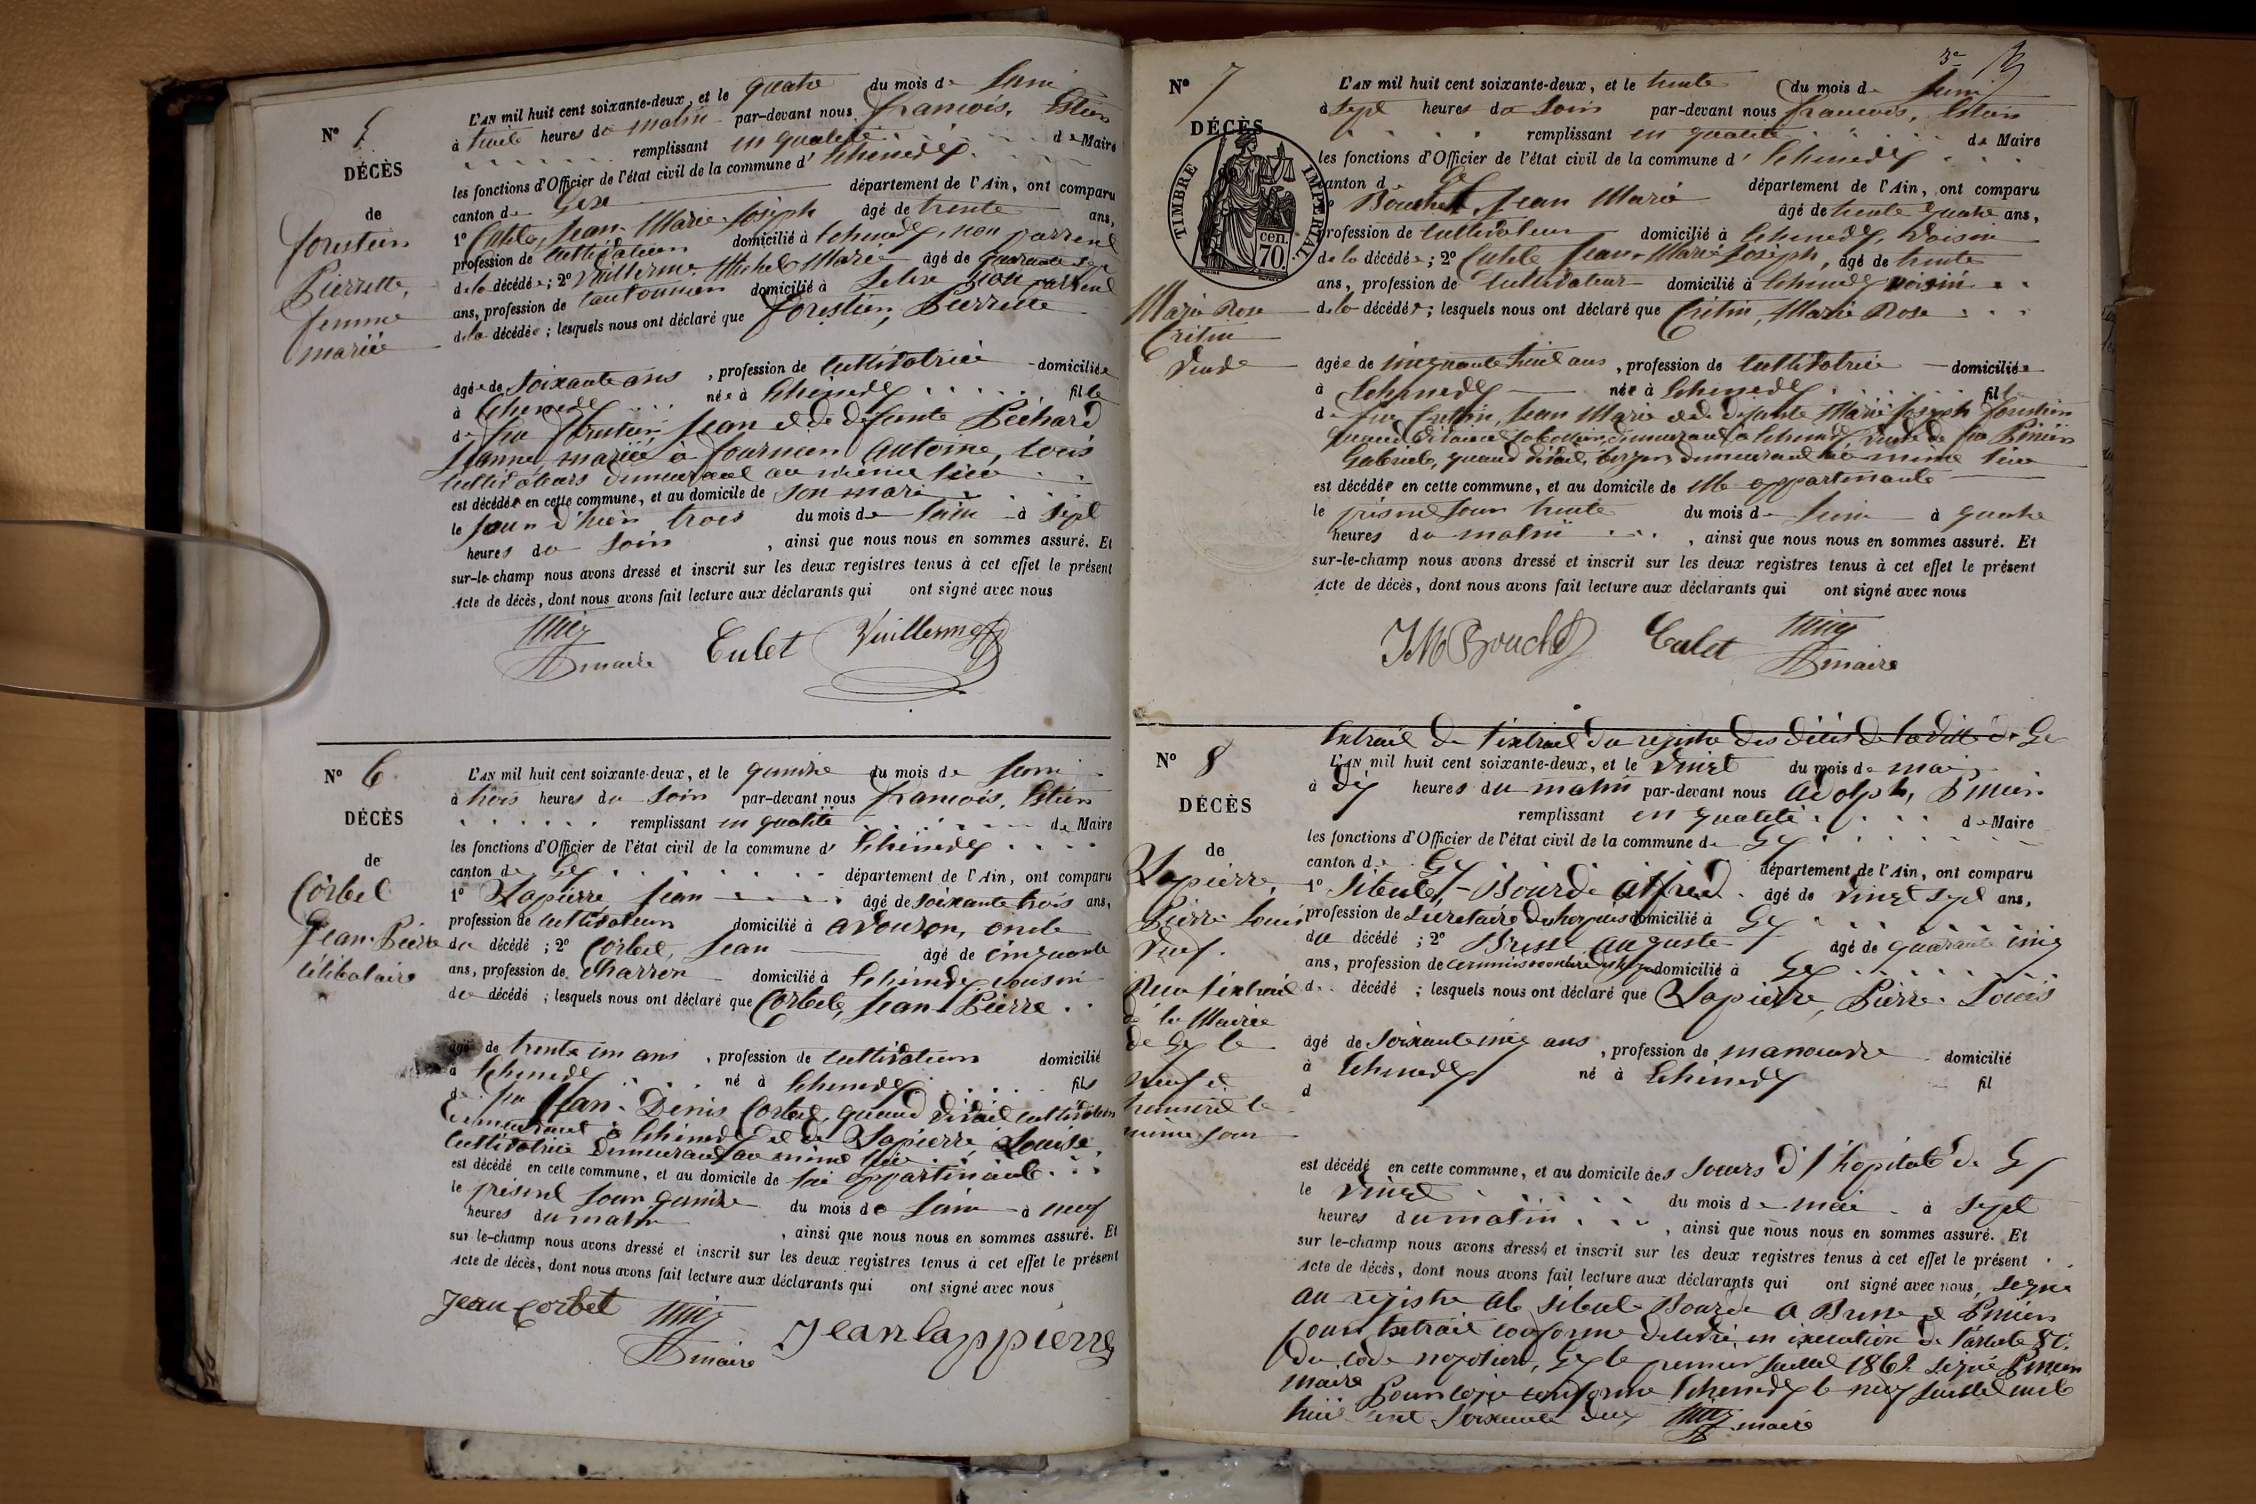 N° 5
DÉCÈS
de
forestier
Pierrette,
femme
mariée
L'AN mil huit cent soixante-deux, et le quatre du mois de Juin
à huit heures du matin par-devant nous françois, Estier
remplissant en qualité de Maire
les fonctions d'Officier de l'état civil de la commune d' Echenevex
canton de Gex département de l'Ain, ont comparu
1° Culet, Jean-Marie-Joseph âgé de trente ans,
profession de cultivateur domicilié à Echenevex, non parrent
de la décédée; 2° Vuillerme, Michel Marie âgé de quarante sept
ans, profession de cantonnier domicilié à non parrent
de la décédée; lesquels nous ont déclaré que forestier, Pierrette
âgée de soixante ans, profession de cultivatrice domiciliée
à Echenevex née à Echenevex fille
de feu forestier, Jean et de défunte Péchard
Jeanne, mariée à fournier Antoine,
cultivateurs demeurant au même lieu
est décédée en cette commune, et au domicile de son mari
le jour d'hier trois du mois de Juin à sept
heures du soir, ainsi que nous nous en sommes assuré. Et
sur-le-champ nous avons dressé et inscrit sur les deux registres tenus à cet effet le présent
Acte de décès, dont nous avons fait lecture aux déclarants qui ont signé avec nous
maire Culet Vuillerme
N° 6
DÉCÈS
de
Corbet
Jean-Pierre
célibataire
L'AN mil huit cent soixante-deux, et le quinze du mois de Juin
à trois heures du soir par-devant nous françois, Estier
remplissant en qualité de Maire
les fonctions d'Officier de l'état civil de la commune d' Echenevex
canton de Gex département de l'Ain, ont comparu
1° Lapierre, Jean âgé de soixante trois ans,
profession de cultivateur domicilié à avouzon, oncle
du décédé; 2° Corbet, Jean âgé de cinquante
ans, profession de charron domicilié à Echenevex cousin
du décédé; lesquels nous ont déclaré que Corbet, Jean-Pierre
âgé de trente un ans, profession de cultivateur domicilié
à Echenevex né à Echenevex fils
de feu Jean-Denis Corbet, quand vivait cultivateur
demeurant à Echenevex et de Lapierre, Louise,
cultivatrice demeurant au même lieu
est décédé en cette commune, et au domicile de lui appartenant
le présent jour quinze du mois de Juin à neuf
heures du matin, ainsi que nous nous en sommes assuré. Et
sur-le-champ nous avons dressé et inscrit sur les deux registres tenus à cet effet le présent
Acte de décès, dont nous avons fait lecture aux déclarants qui ont signé avec nous
Jean Corbet maire Jean lappierre
3e
N° 7
DÉCÈS
TIMBRE IMPÉRIAL
70 cen.
Marie Rose
Critin
Veuve
L'AN mil huit cent soixante-deux, et le trente du mois de Juin
à sept heures du soir par-devant nous françois, Estier
remplissant en qualité de Maire
les fonctions d'Officier de l'état civil de la commune d' Echenevex
canton de Gex département de l'Ain, ont comparu
Bouchet, Jean Marie âgé de trente quatre ans,
profession de cultivateur domicilié à Echenevex, voisin
de la décédée; 2° Culet Jean-Marie Joseph, âgé de trente
ans, profession de cultivateur domicilié à Echenevex voisin
de la décédée; lesquels nous ont déclaré que Critin, Marie Rose
âgée de cinquante huit ans, profession de cultivatrice domiciliée
à Echenevex née à Echenevex fille
de feu Critin, Jean Marie et de défunte Marie Joseph forestier
quand vivaient demeurant à Echenevex, veuve de feu
Gabriel, quand vivait berger demeurant au même lieu
est décédée en cette commune, et au domicile de elle appartenante
le présent jour trente du mois de Juin à quatre
heures du matin, ainsi que nous nous en sommes assuré. Et
sur-le-champ nous avons dressé et inscrit sur les deux registres tenus à cet effet le présent
Acte de décès, dont nous avons fait lecture aux déclarants qui ont signé avec nous
JM Bouchet Culet maire
Extrait de l'extrait du registre des décès de la ville de Gex
N° 8
DÉCÈS
de
Lapierre,
Pierre Louis
Veuf.
Reçu l'extrait
de la Mairie
de Gex le
neuf et
transcrit le
même jour
L'AN mil huit cent soixante-deux, et le vingt du mois de mai
à dix heures du matin par-devant nous Adolph,
remplissant en qualité de Maire
les fonctions d'Officier de l'état civil de la commune de Gex
canton de Gex département de l'Ain, ont comparu
1° Sibuet-Bourde Alfred âgé de vingt sept ans,
profession de Secrétaire domicilié à Gex
du décédé; 2° Brisse Auguste âgé de quarante cinq
ans, profession de domicilié à Gex
d décédé; lesquels nous ont déclaré que Lapierre, Pierre-Louis
âgé de soixante cinq ans, profession de manœuvre domicilié
à Echenevex né à Echenevex fil
d
est décédé en cette commune, et au domicile des sœurs d l'hopital de Gex
le vingt du mois de mai à sept
heures du matin, ainsi que nous nous en sommes assuré. Et
sur le-champ nous avons dressé et inscrit sur les deux registres tenus à cet effet le présent
Acte de décès, dont nous avons fait lecture aux déclarants qui ont signé avec nous, signé
au registre Sibuet Bourde A Brisse et
pour Extrait conforme délivré en exécution de l'article 80
du code Gex le premier Juillet 1862 signé
maire Pour copie conforme Echenevex le neuf Juillet mil
huit cent soixante deux maire